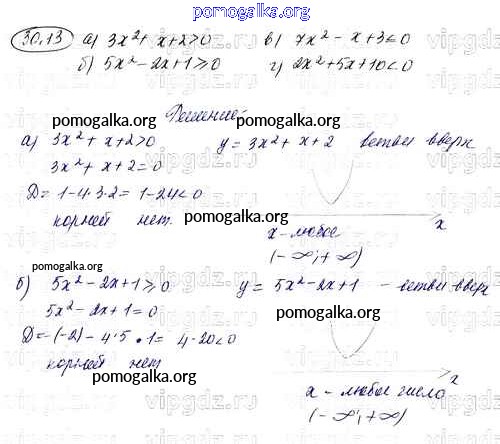 pomogalka.org
30.13 а) 3x² + x + 2 > 0 в) 7x² - x + 3 ≤ 0
б) 5x² - 2x + 1 ≥ 0 г) 2x² + 5x + 10 < 0
pomogalka.org
Решение:
pomogalka.org
а) 3x² + x + 2 > 0 y = 3x² + x + 2 ветви вверх
3x² + x + 2 = 0
D = 1 - 4·3·2 = 1 - 24 < 0
корней нет. pomogalka.org
x
x - любое
(-∞; +∞)
pomogalka.org
б) 5x² - 2x + 1 ≥ 0 y = 5x² - 2x + 1 - ветви вверх
5x² - 2x + 1 = 0
D = -(-2) - 4·5·1 = 4 - 20 < 0
корней нет
pomogalka.org
x
x - любое число
(-∞; +∞)
pomogalka.org